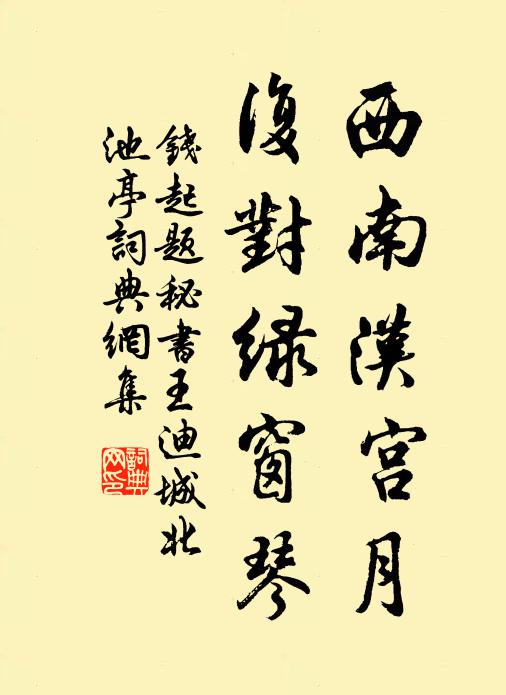 西南漢宮月
復對綠窗琴
錢起題秘書王迪城北
池亭詞典網集
詞典網印